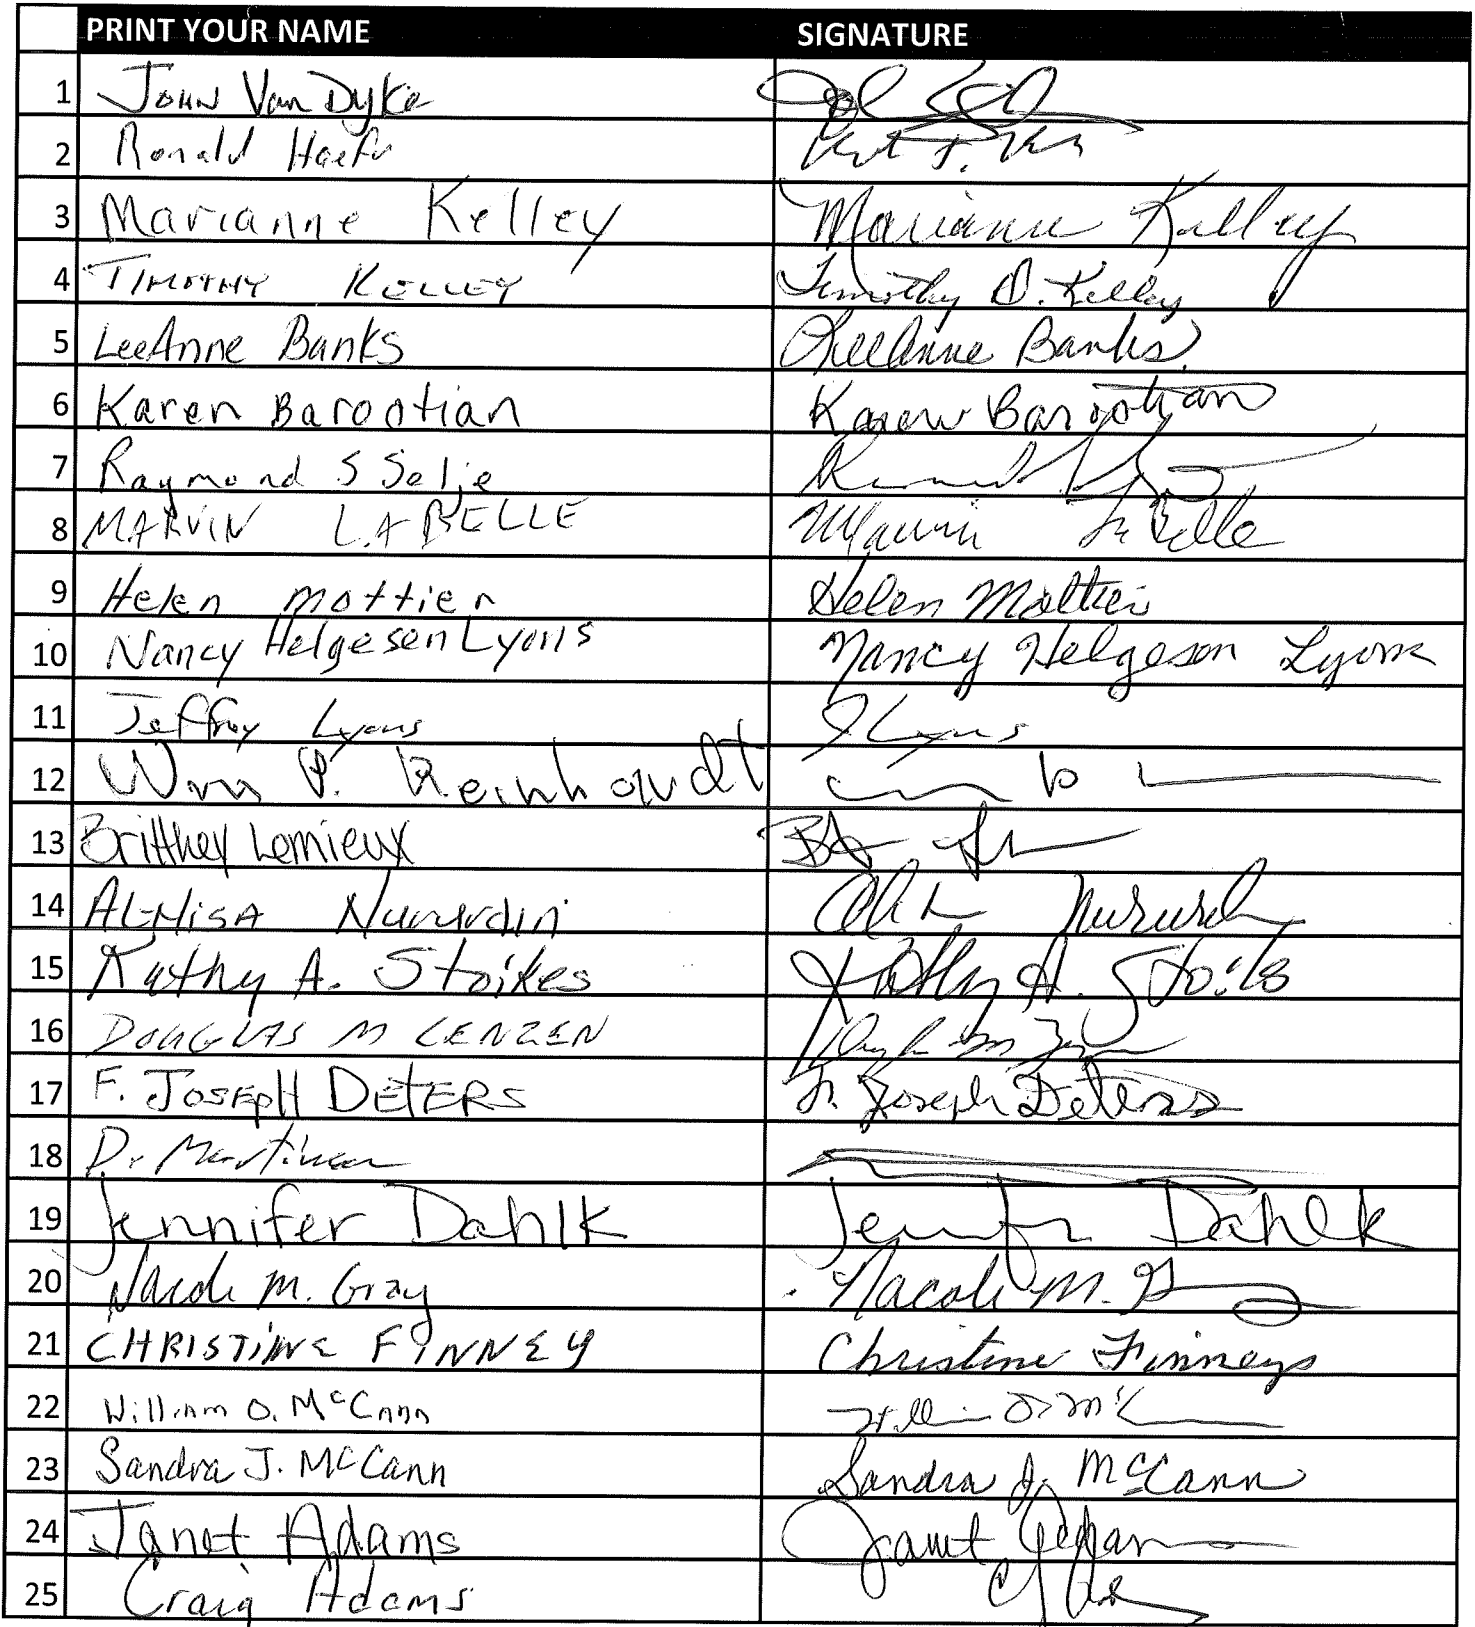 PRINT YOUR NAME SIGNATURE
1 John Van Dyke
2 Ronald
3 Marianne Kelley Marianne Kelley
4 Timothy Kelley Timothy D. Kelley
5 LeeAnne Banks LeeAnne Banks
6 Karen Barootian Karen Barootian
7 Raymond S Selje
8 MARVIN LABELLE Marvin La Belle
9 Helen Mottier Helen Mottier
10 Nancy Helgesen Lyons Nancy Helgeson Lyons
11 Jeffrey Lyons J Lyons
12 Wm P.
13 Brittney Lemieux
14 Nururdin
15 Kathy A. Stoikes Kathy A. Stoikes
16 DOUGLAS M LENZEN
17 F. JOSEPH DETERS F. Joseph Deters
18 D.
19 Jennifer Dahlk Jennifer Dahlk
20 Nacole M. Gray Nacole M.
21 CHRISTINE FINNEY Christine Finney
22 William O. McCann
23 Sandra J. McCann Sandra J. McCann
24 Janet Adams Janet Adams
25 Craig Adams